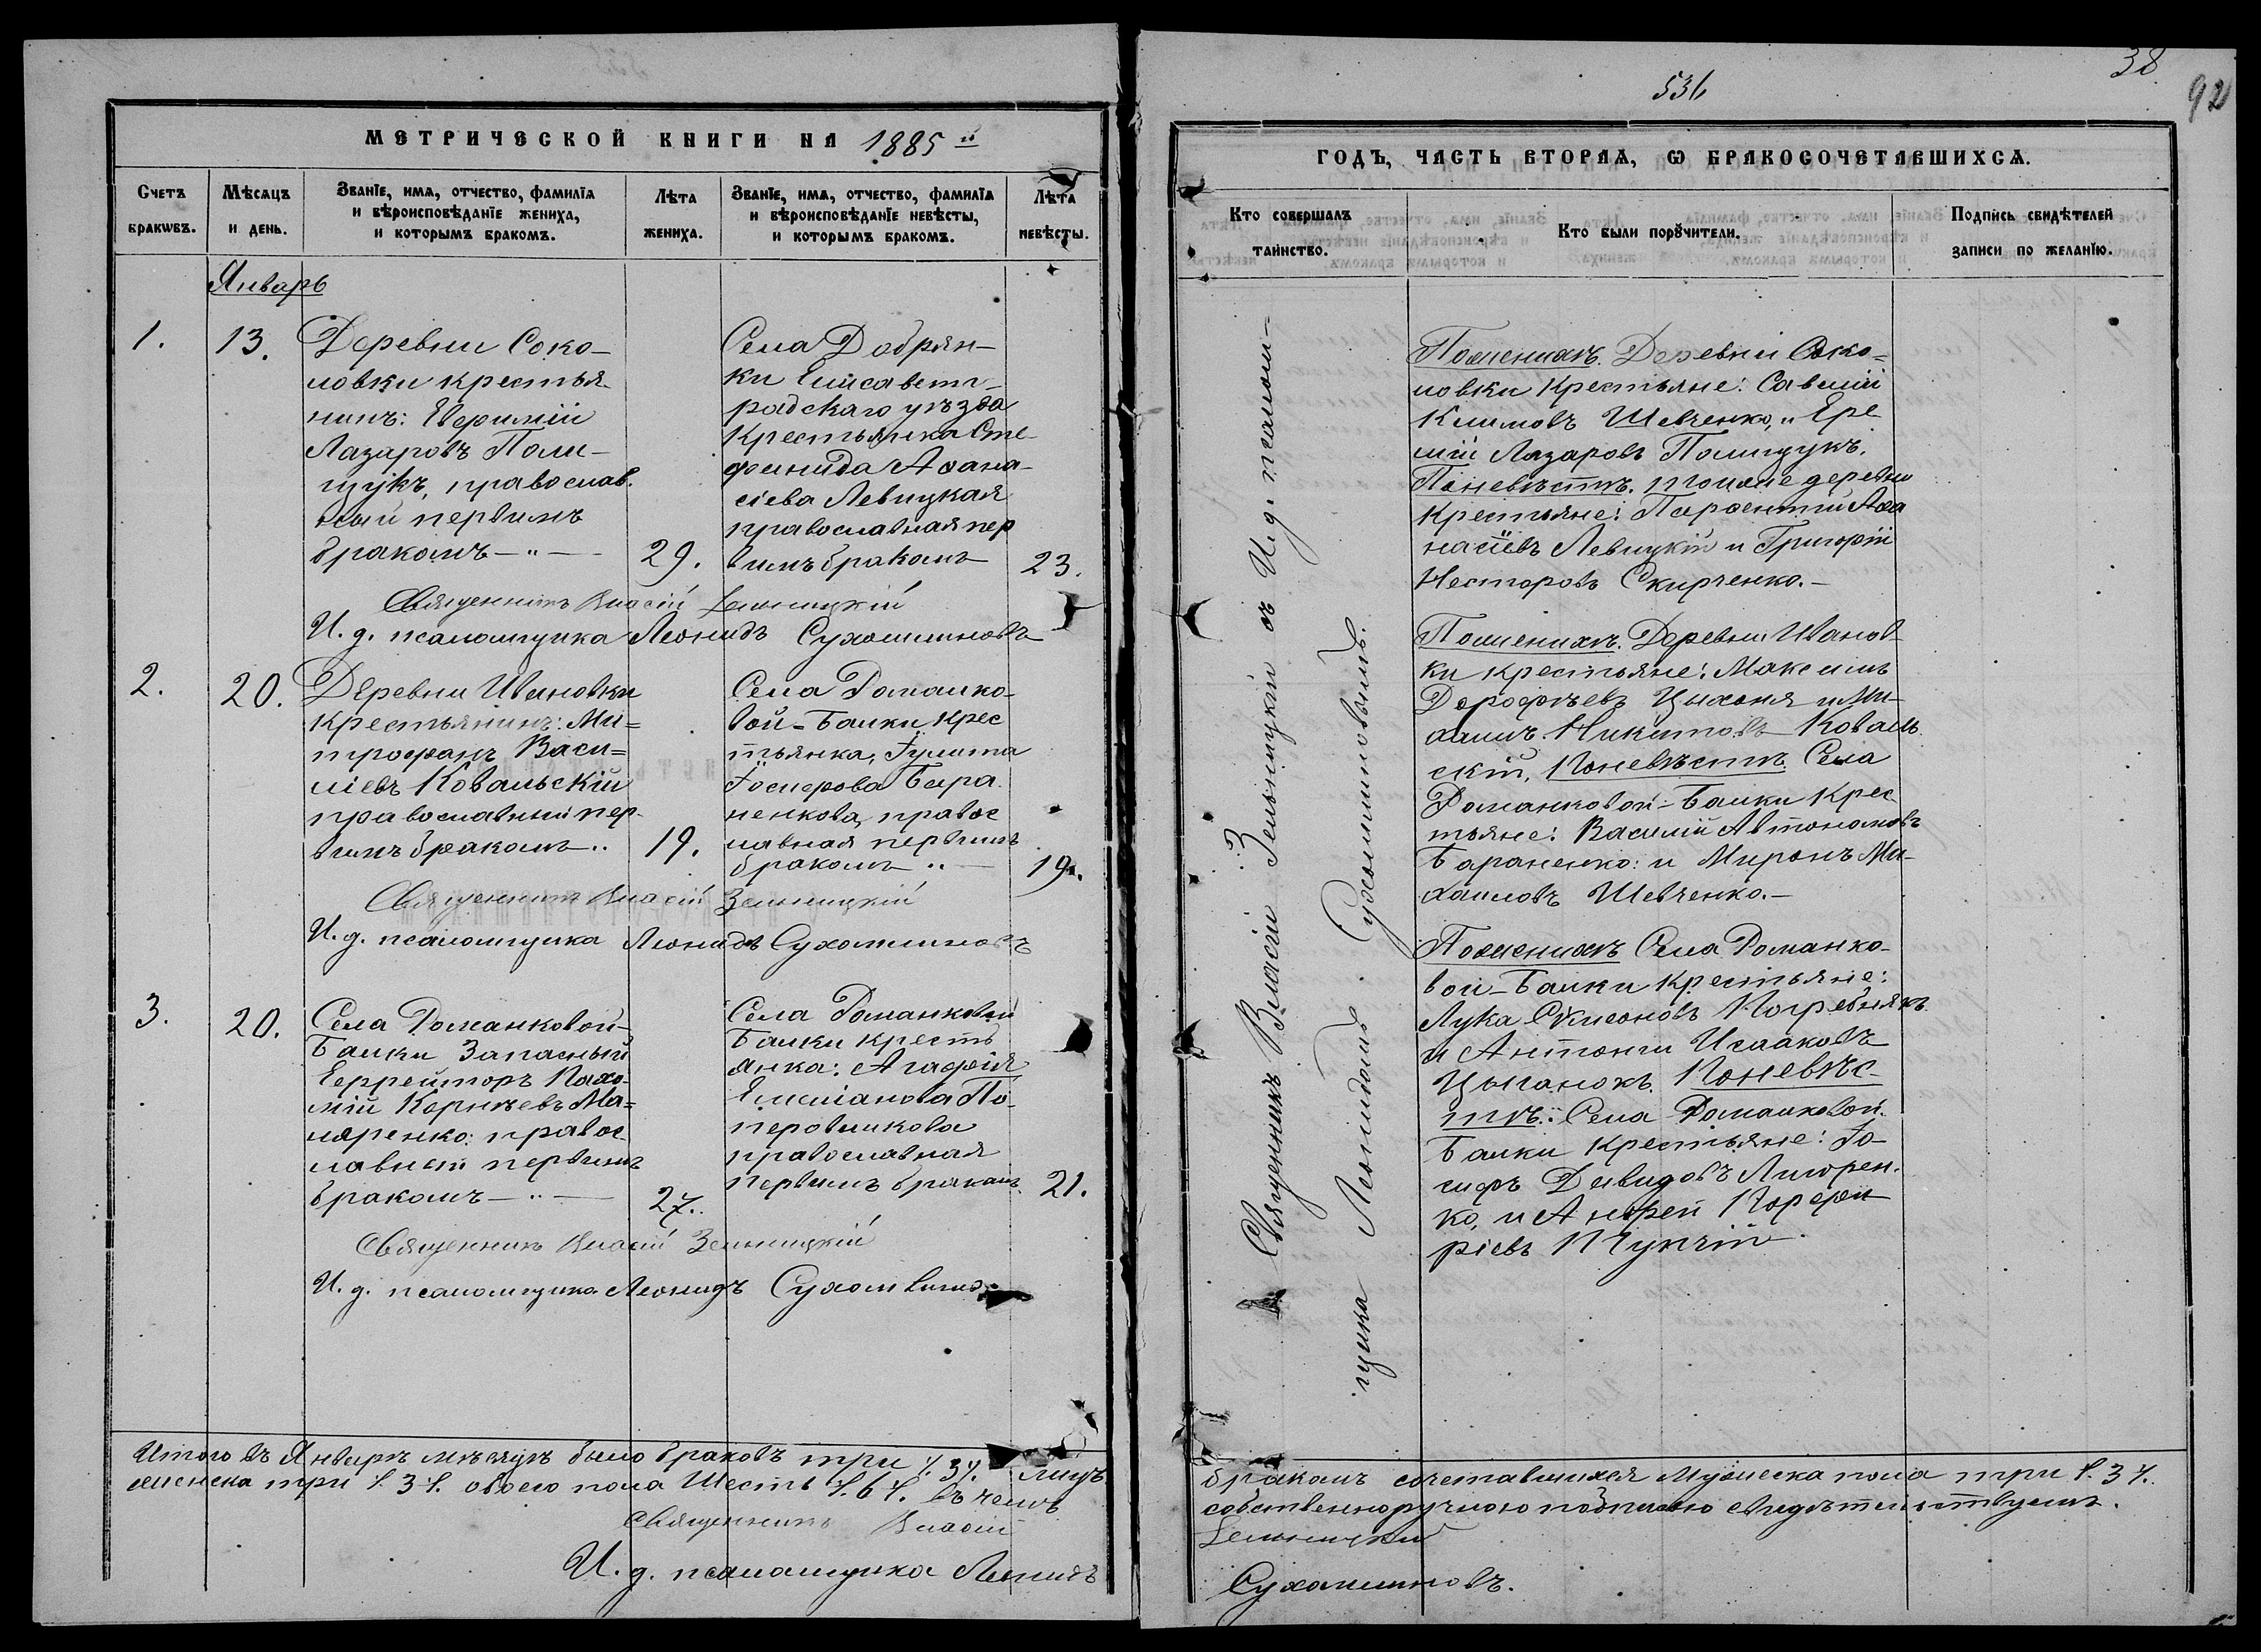 МЕТРИЧЕСКОЙ КНИГИ НА 1885 й
Счетъ браковъ.
Мѣсяцъ и день.
Званїе, имя, отчество, фамилїя
и вѣроисповѣданїе жениха,
и которымъ бракомъ.
Лѣта жениха.
Званїе, имя, отчество, фамилїя
и вѣроисповѣданїе невѣсты,
и которымъ бракомъ.
Лѣта невѣсты.
Январь
1.
13.
Деревни Соко-
ловки крестья-
нинъ: Евфимій
Лазаровъ Поли-
щукъ, православ.
ный первымъ
бракомъ —〃—
29.
Села Добрян-
ки Елисавет-
радскаго уѣзда
крестьянка Сте-
фанида Аѳана-
сіева Левицкая
православная пер
вымъ бракомъ
23.
Священникъ Власій Зельницкій
И. д. псаломщика Леонидъ Сухомлиновъ
2.
20.
Деревни Ивановки
крестьянинъ: Ми=
трофанъ Васи=
ліевъ Ковальскій
православный пер-
вымъ бракомъ 〃
19.
Села Романко-
вой-Балки крес
тьянка, Іулита
Бараненкова, правос
лавная первымъ
бракомъ 〃 —
19.
Священникъ Власій Зельницкій
И. д. псаломщика Леонидъ Сухомлиновъ
3.
20.
Села Романковой-
Балки Запасный
Ефрейторъ Пахо-
мій Корнѣевъ Ма=
ляренко: правос-
лавный первымъ
бракомъ —〃—
27.
Села Романковой
Балки кресть
янка: Агафія
Емеліанова По-
православная
первымъ бракомъ
21.
Священникъ Власій Зельницкій
И. д. псаломщика Леонидъ Сухомлиновъ
Итого въ Январѣ мѣсяцѣ было браковъ три /.3/. лицъ
женска три /.3/. обоего пола Шесть /.6/. въ чемъ
Священникъ Власій
И. д. псаломщика Леонидъ
536
38
92
ГОДЪ, ЧАСТЬ ВТОРАЯ, Ѡ БРАКОСОЧЕТАВШИХСЯ.
Кто совершалъ таинство.
Кто были порꙋчители.
Подпись свидѣтелей записи по желанїю.
Священникъ Власій Зельницкій съ И. д. псалом-
щика Леонидомъ Сухомлиновымъ.
По женихѣ. Деревни Соко=
ловки крестьяне: Савелій
Климовъ Шевченко, и Ере
мій Лазаровъ Полищукъ.
По невѣстѣ. тойже деревни
крестьяне: Парѳентій Аѳа
насіевъ Левицкій и Григорій
Несторовъ Скирченко.-
По женихѣ. Деревни Иванов-
ки крестьяне: Максимъ
Дорофѣевъ Цыхоня и Ми-
хаилъ Никитовъ Коваль
скій, По невѣстѣ. Села
Романковой-Балки крес
тьяне: Василій Автономовъ
Бараненко: и Миронъ Ми-
хаиловъ Шевченко.-
По женихѣ Села Романко-
вой-Балки крестьяне:
Лука Погребнякъ
и Антоній Исааковъ
Цыганокъ. По невѣс-
тѣ: Села Романковой
Балки крестьяне: Іо-
сифъ Давидовъ
ко, и Андрей Порфи
ріевъ
бракомъ сочетавшихся мужеска пола три /.3/.
собственноручною подписью свидѣтельствуемъ.
Зельницкій
Сухомлиновъ.